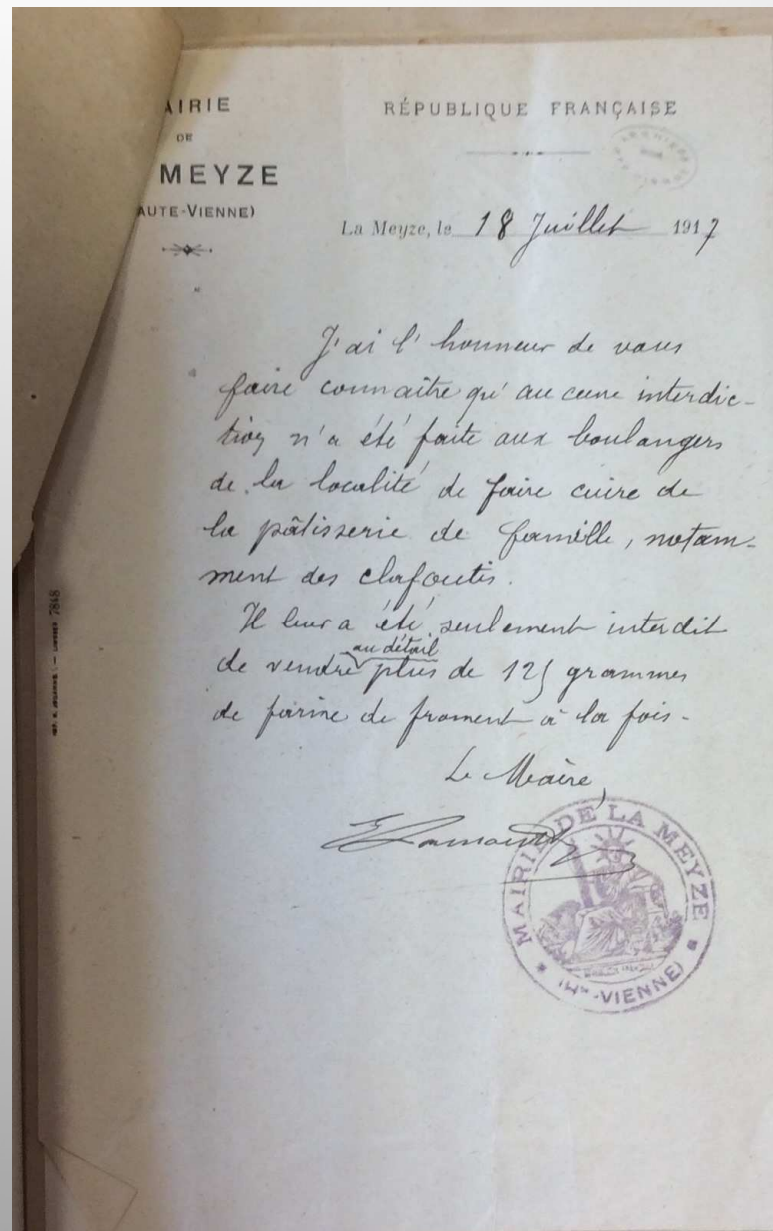 AIRIE
DE
MEYZE
AUTE-VIENNE)
RÉPUBLIQUE FRANÇAISE
La Meyze, le 18 Juillet 1917
J'ai l'honneur de vous
faire connaître qu'aucune interdic-
tion n'a été faite aux boulangers
de la localité de faire cuire de
la pâtisserie de famille, notam-
ment des clafoutis.
Il leur a été seulement interdit
au détail
de vendre plus de 125 grammes
de farine de froment à la fois.
Le Maire,
MAIRIE DE LA MEYZE
(Hte-VIENNE)